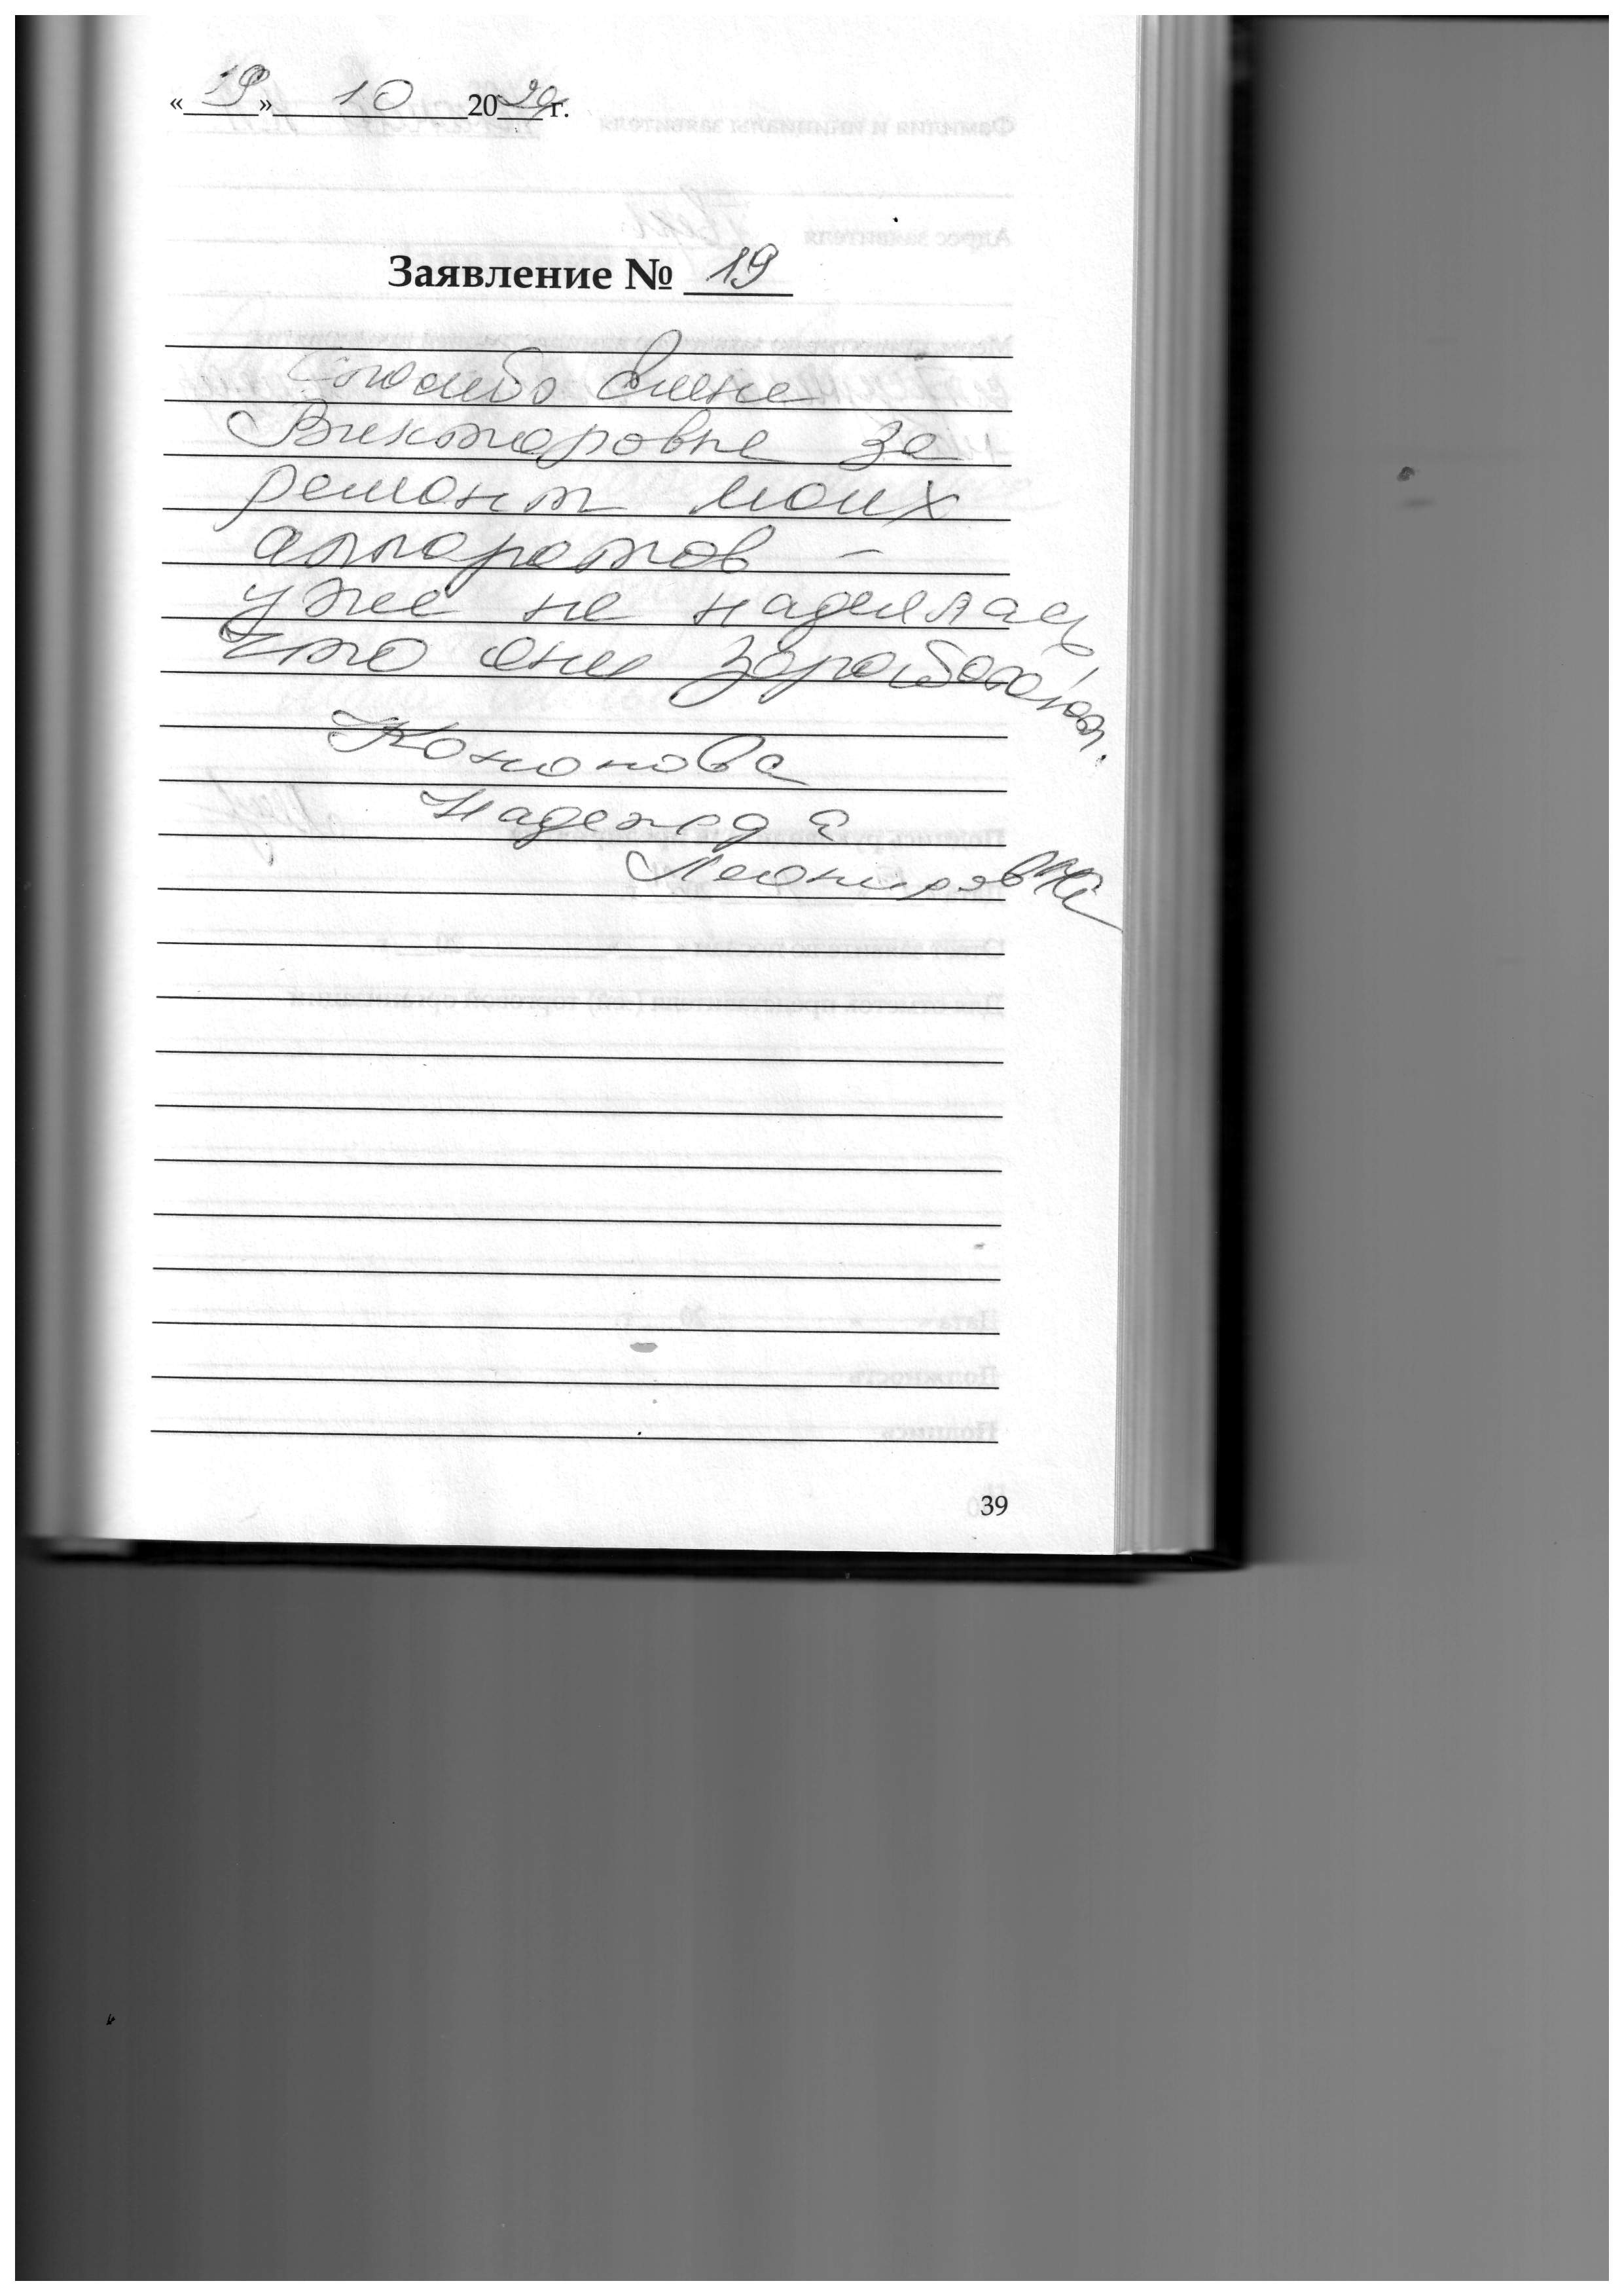 «19» 10 20 г.
Заявление № 19
Спасибо Елене
Викторовне за
ремонт моих
аппаратов -
уже не надеялась,
что они заработают.
Кононова
Надежда
Леонидовна
39